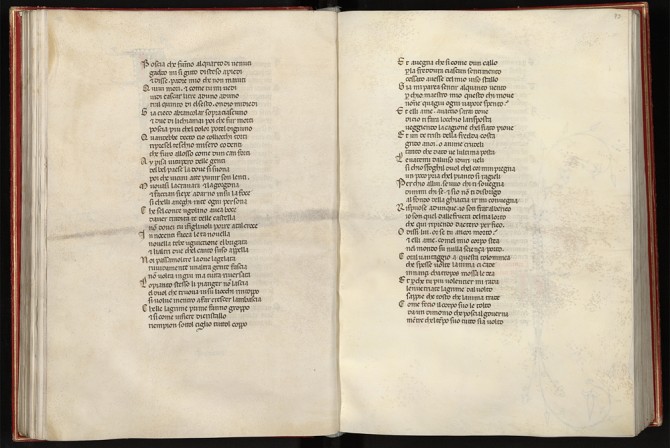 Poscia che fumo al quarto di venuti
gaddo mi si gitto disteso a piedi
& disse padre mio che non maiuti
Quivi mori. & come tu mi vedi
vidi cascar li tre aduno aduno
tral quinto di el sesto. ondio mi diedi
Gia cieco abrancolar sopra ciascuno
& due di li chiamai poi che fur morti
poscia piu chel dolor pote il digiuno
Quandhebbe detto cio co gliocchi torti
riprese il teschio misero co denti
che furo allosso come dun can forti
Ay pisa vitupero delle genti
del bel paese la dove il si sona
poi che vicini ate punir son lenti.
Movasi la capraia & la gorgona
& faccian siepe adarno in su la foce
si chelli anneghi inte ogni persona
Che sel conte ugolino avea boce
daver tradita te delle castella
nō dovei tu i figliuoli porre atal croce
Innocenti facea leta novella
novella tebe uguiccione el brigata
& li altri due chel canto suso appella
Noi passamo oltre la ove la gelata
ruvidamente unaltra gente fascia
nō volta in giu ma tutta riversata
Lo pianto stesso li pianger nō lascia
el duol che truova insu liocchi rintoppo
si volve inentro afar crescer lambascia
Che le lagrime prime fanno groppo
& si come visiere di cristallo
riempion sottol ciglio tuttol coppo
Et avegna che si come dun callo
per la freddura ciascun sentimento
cessato avesse del mio viso stallo
Gia mi parea sentir alquanto vento
perchio. maestro mio questo chi move
none qua giu ogni vapor spento?
Et elli ame. avaccio sarai dove
di cio ti fara locchio la risposta
veggendo la cagione chel fiato piove
Et un de tristi della fredda crosta
grido anoi. o anime crudeli
tanto che data ve lultima posta
Levatemi dal viso iduri veli
si chio sfoghi duol chel cor mi pregna
un poco pria chel pianto si ragieli
Perchio allui. se vuo chi ti sovegna
dimmi chi se. & sio nō ti disbrigo
al fondo della ghiaccia ir mi convegna
Rispuose adunque. io son frate alberico
io son quel dalle frutte del mal orto
che qui riprendo dattero per fico.
O dissi lui. or se tu ancor morto?
& elli ame. come il mio corpo stea
nel mondo su nulla sciença porto.
Cotal vantaggio a questa tolommea
che spesse volte lanima ci cade
innançi chatropos mossa le dea
Et perche tu piu volentier mi rada
le nvetriate lagrime dal volto
sappie che tosto che lanima trade
Come fecio il corpo suo le tolto
da un dimonio che poscial governa
mētre chel tēpo suo tutto sia volto